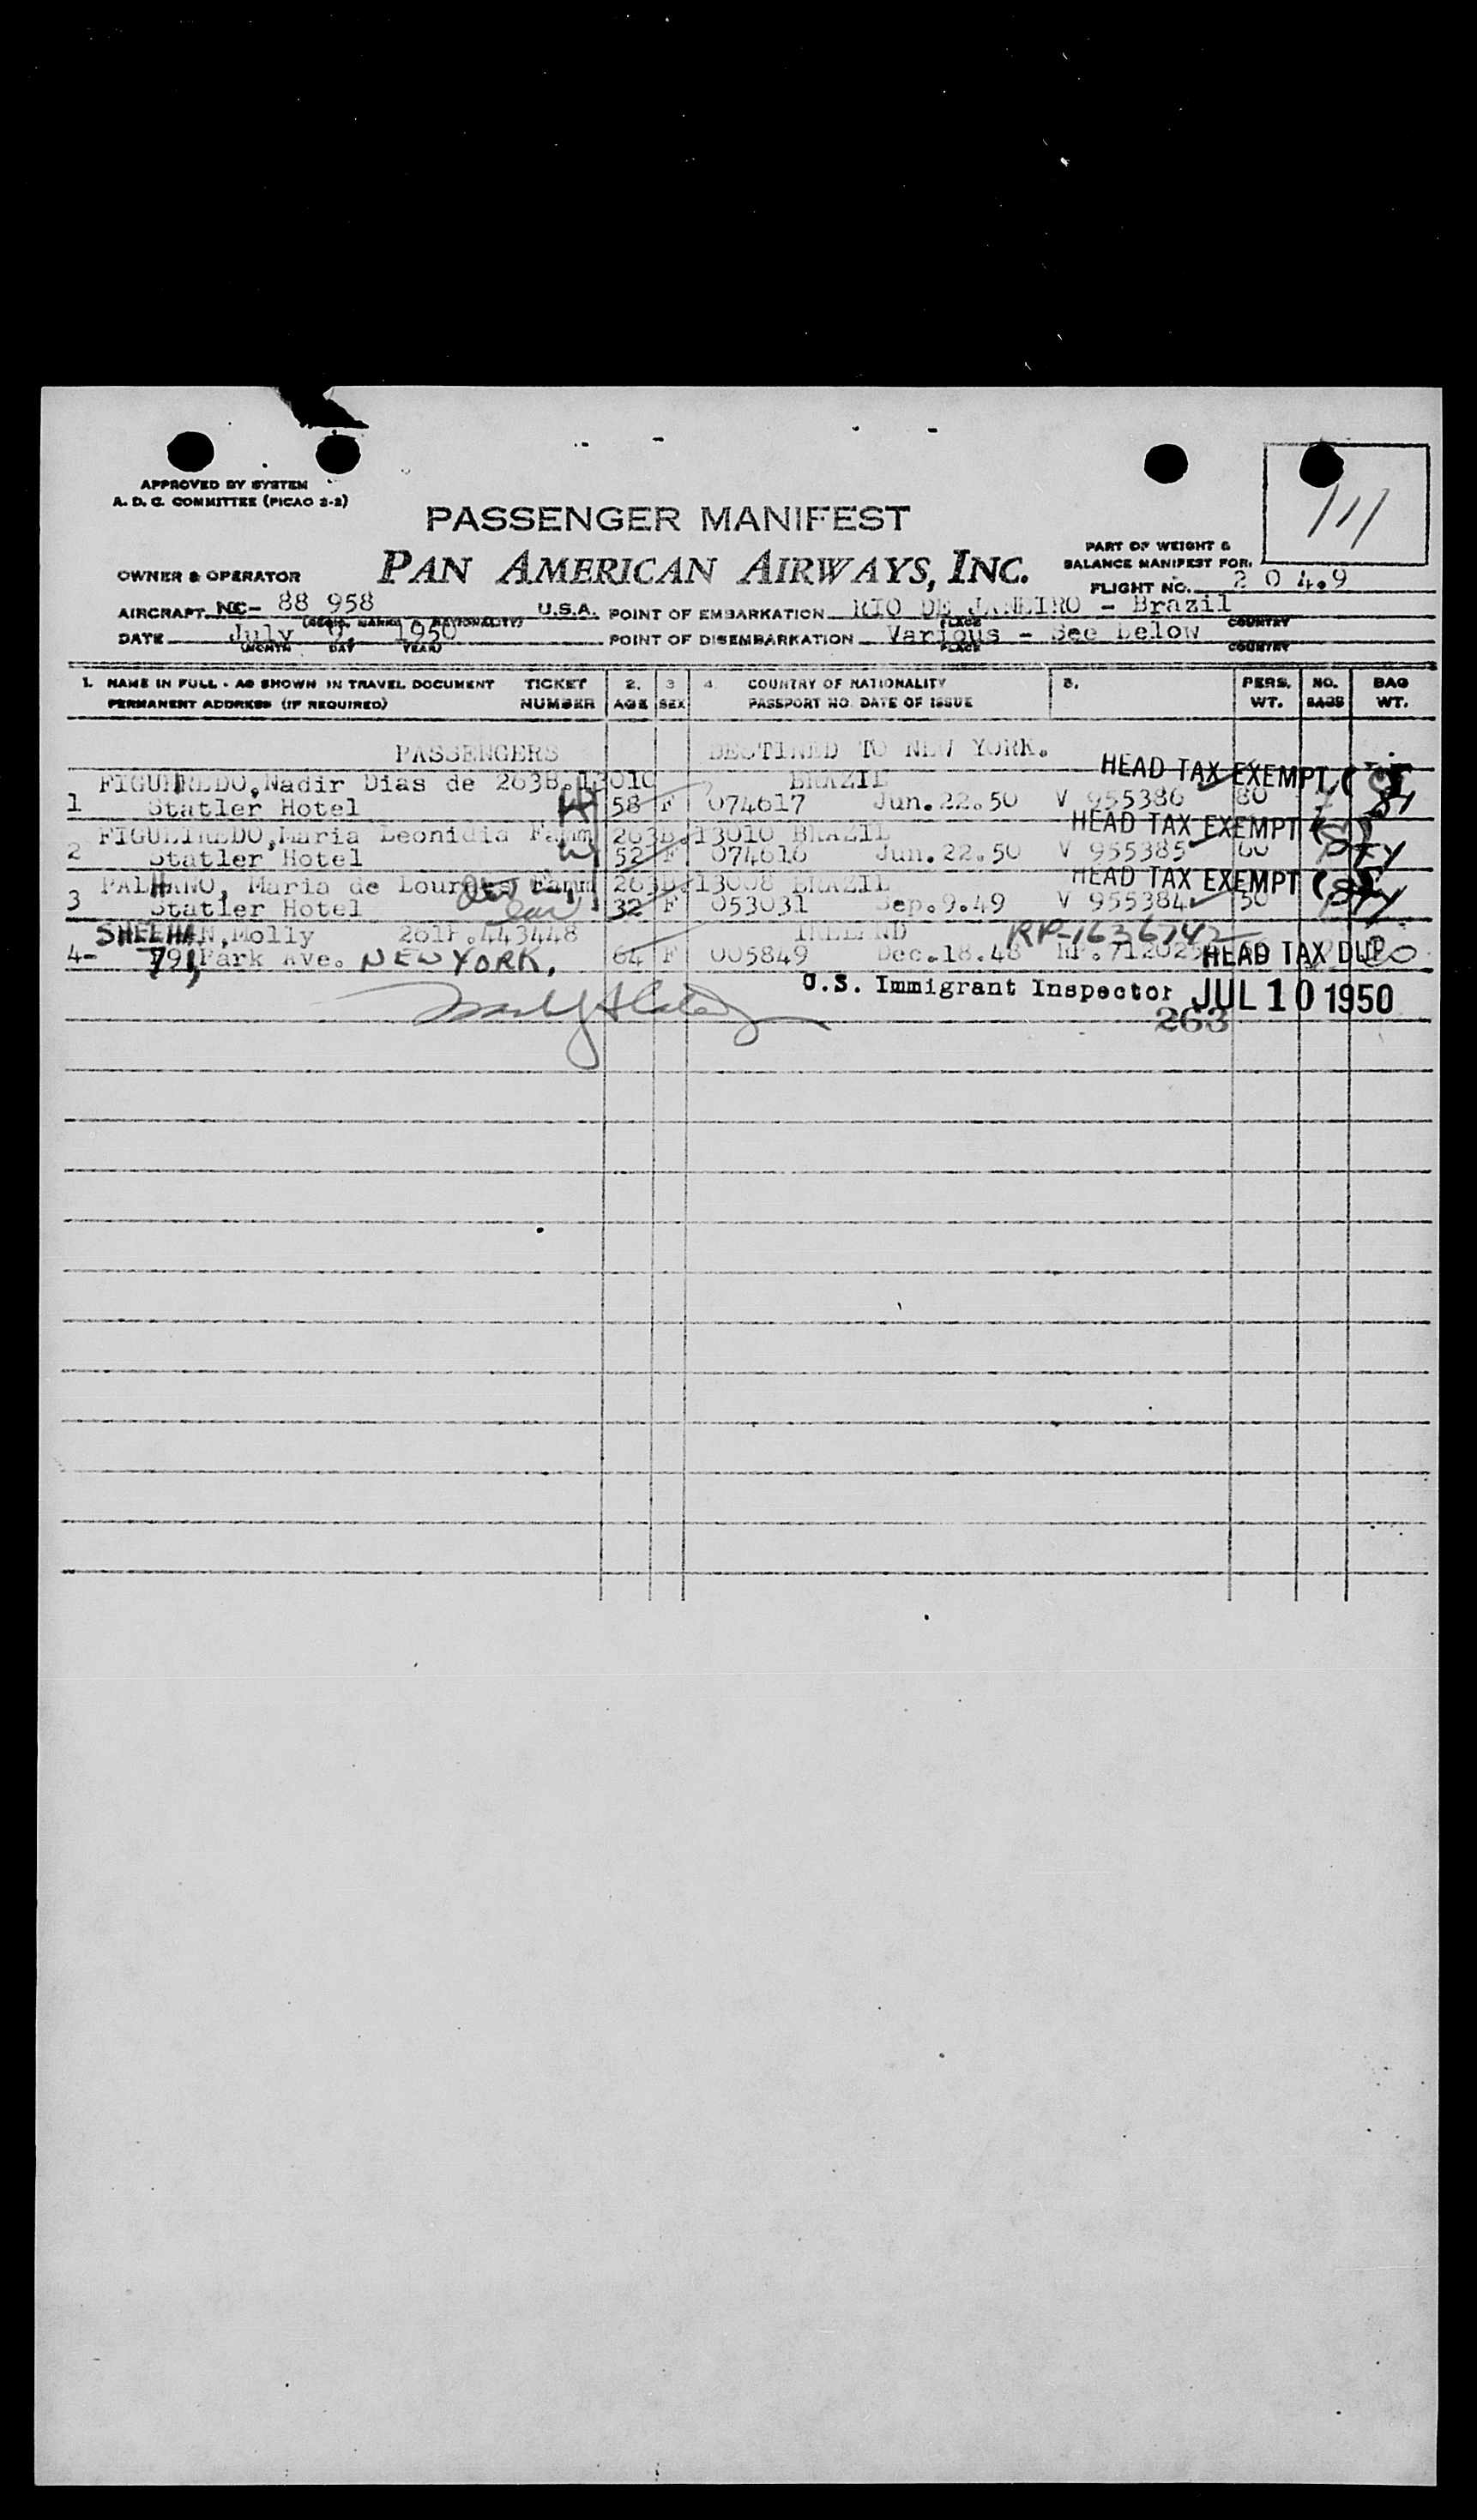 111
APPROVED BY SYSTEM
A. D. C. COMMITTEE (PICAO 2-2)
PASSENGER MANIFEST
PART OF WEIGHT &
BALANCE MANIFEST FOR.
OWNER & OPERATOR PAN AMERICAN AIRWAYS, INC.
FLIGHT NO. 2 0 4.9
AIRCRAFT NC- 88 958 U.S.A. POINT OF EMBARKATION RIO DE JANEIRO - Brazil
(REGIS. MARKS & NATIONALITY) PLACE COUNTRY
DATE July 9, 1950 POINT OF DISEMBARKATION Various - See below
(MONTH DAY YEAR) PLACE COUNTRY
1. NAME IN FULL - AS SHOWN IN TRAVEL DOCUMENT TICKET 2. 3 4. COUNTRY OF NATIONALITY 5. PERS. NO. BAG
PERMANENT ADDRESS (IF REQUIRED) NUMBER AGE SEX PASSPORT NO. DATE OF ISSUE WT. BAGS WT.
PASSENGERS DESTINED TO NEW YORK.
HEAD TAX EXEMPT
FIGUEIREDO, Nadir Dias de 263B.13010 BRAZIL
1 Statler Hotel 58 F 074617 Jun.22.50 V 955386 80
HEAD TAX EXEMPT
FIGUEIREDO, Maria Leonidia Famm 263B.13010 BRAZIL
2 Statler Hotel 52 F 074616 Jun.22.50 V 955385 60
HEAD TAX EXEMPT
PALHANO, Maria de Lourdes Famm 263B.13008 BRAZIL
3 Statler Hotel 32 F 053031 Sep.9.49 V 955384 50
SHEEHAN, Molly 261F.443448 IRELAND RP-1636742
4- 791, Park Ave. NEW YORK. 64 F 005849 Dec.18.48 HEAD TAX DUP
U.S. Immigrant Inspector JUL 10 1950
263